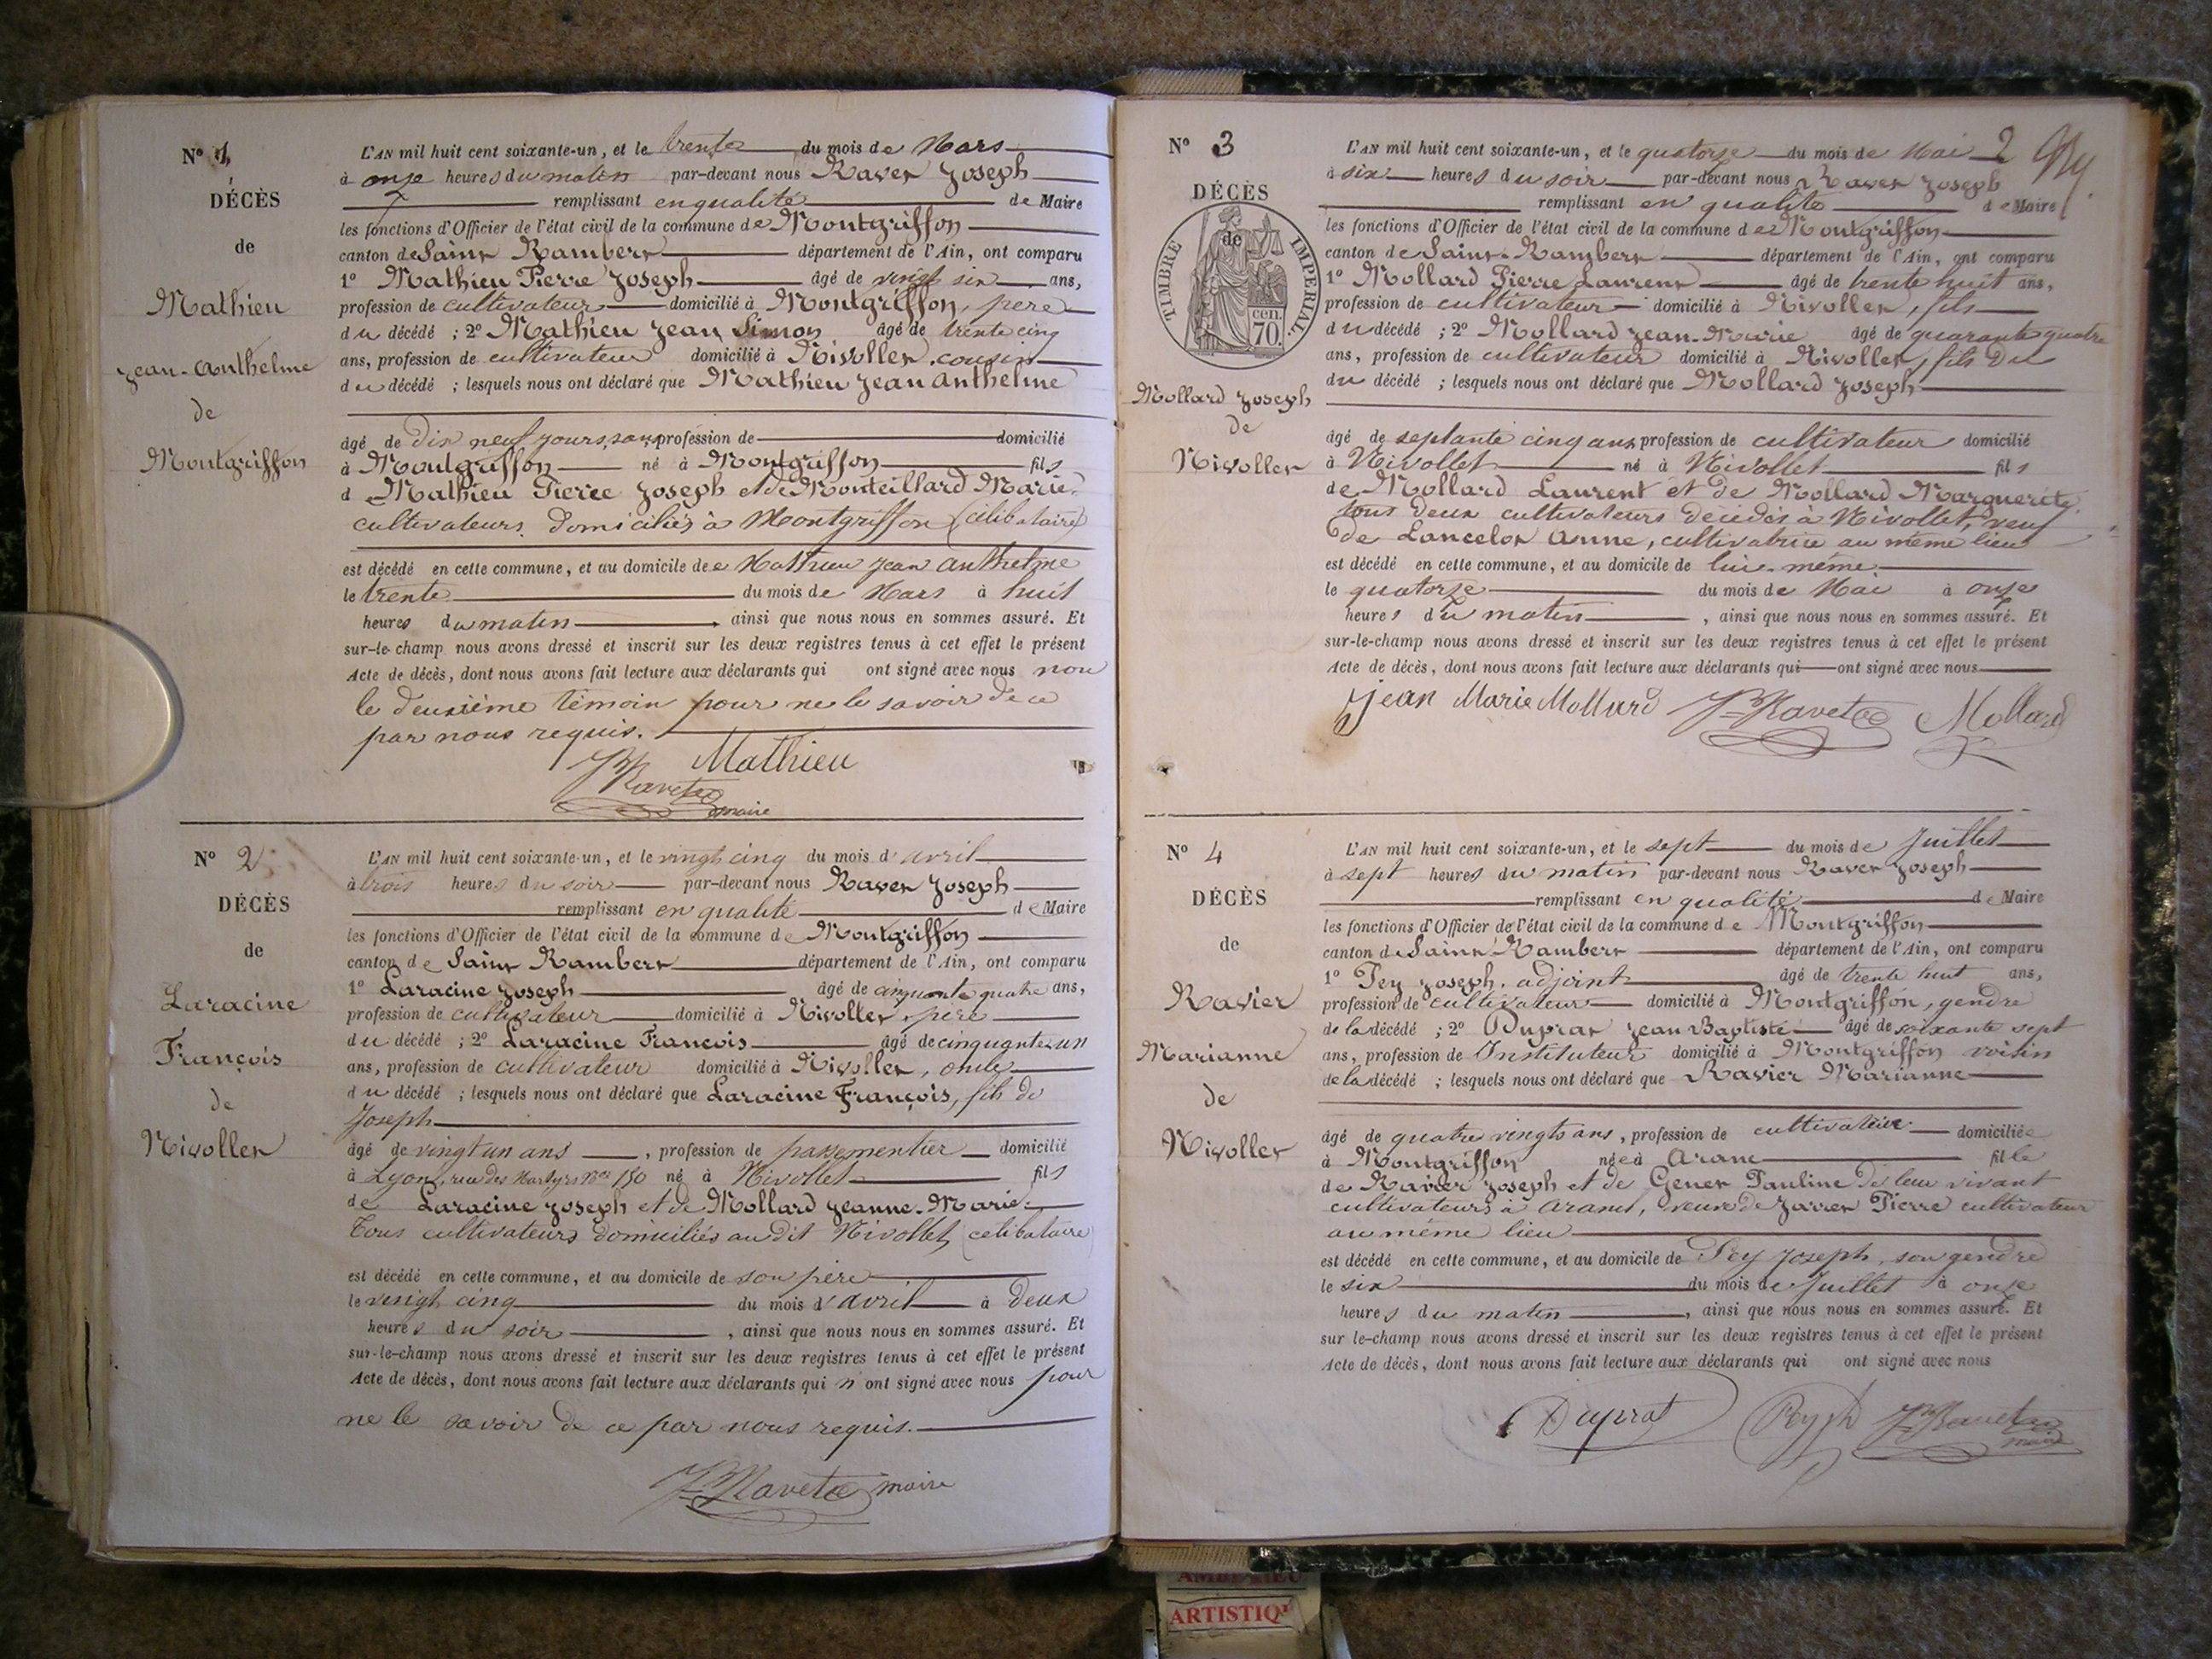 N° 1
DÉCÈS
de
Mathieu
Jean-Anthelme
de
Montgriffon
L'AN mil huit cent soixante-un, et le trente du mois de Mars
à onze heures du matin par-devant nous Ravet Joseph
remplissant en qualité de Maire
les fonctions d'Officier de l'état civil de la commune de Montgriffon
canton de Saint Rambert département de l'Ain, ont comparu
1° Mathieu Pierre Joseph âgé de vingt six ans,
profession de cultivateur domicilié à Montgriffon, père
du décédé ; 2° Mathieu Jean Simon âgé de trente cinq
ans, profession de cultivateur domicilié à Nivollet cousin
du décédé ; lesquels nous ont déclaré que Mathieu Jean Anthelme
âgé de dix neuf jours, sans profession de domicilié
à Montgriffon né à Montgriffon fils
de Mathieu Pierre Joseph et de Monteillard Marie
cultivateurs domiciliés à Montgriffon (célibataire)
est décédé en cette commune, et au domicile de Mathieu Jean Anthelme
le trente du mois de Mars à huit
heures du matin ainsi que nous nous en sommes assuré. Et
sur-le-champ nous avons dressé et inscrit sur les deux registres tenus à cet effet le présent
Acte de décès, dont nous avons fait lecture aux déclarants qui ont signé avec nous non
le deuxième témoin pour ne le savoir de ce
par nous requis.
Mathieu
Ravet
maire
N° 2
DÉCÈS
de
Laracine
François
de
Nivollet
L'AN mil huit cent soixante-un, et le vingt cinq du mois d'avril
à trois heures du soir par-devant nous Ravet Joseph
remplissant en qualité de Maire
les fonctions d'Officier de l'état civil de la commune de Montgriffon
canton de Saint Rambert département de l'Ain, ont comparu
1° Laracine Joseph âgé de cinquante quatre ans,
profession de cultivateur domicilié à Nivollet, père
du décédé ; 2° Laracine François âgé de cinquante un
ans, profession de cultivateur domicilié à Nivollet, oncle
du décédé ; lesquels nous ont déclaré que Laracine François, fils de
Joseph
âgé de vingt un ans, profession de passementier domicilié
à Lyon, rue des Martyrs N° 150 né à Nivollet fils
de Laracine Joseph et de Mollard Jeanne-Marie
Tous cultivateurs domiciliés au dit Nivollet (célibataire)
est décédé en cette commune, et au domicile de son père
le vingt cinq du mois d'avril à deux
heures du soir, ainsi que nous nous en sommes assuré. Et
sur-le-champ nous avons dressé et inscrit sur les deux registres tenus à cet effet le présent
Acte de décès, dont nous avons fait lecture aux déclarants qui n'ont signé avec nous pour
ne le savoir de ce par nous requis.
Ravet maire
N° 3
DÉCÈS
de
TIMBRE IMPERIAL
cen.
70.
Mollard Joseph
de
Nivollet
L'AN mil huit cent soixante-un, et le quatorze du mois de Mai 2
à six heures du soir par-devant nous Ravet Joseph
remplissant en qualité de Maire
les fonctions d'Officier de l'état civil de la commune de Montgriffon
canton de Saint-Rambert département de l'Ain, ont comparu
1° Mollard Pierre Laurent âgé de trente huit ans,
profession de cultivateur domicilié à Nivollet, fils
du décédé ; 2° Mollard Jean-Marie âgé de quarante quatre
ans, profession de cultivateur domicilié à Nivollet, fils du
du décédé ; lesquels nous ont déclaré que Mollard Joseph
âgé de septante cinq ans, profession de cultivateur domicilié
à Nivollet né à Nivollet fils
de Mollard Laurent et de Mollard Marguerite
tous deux cultivateurs décédés à Nivollet, veuf
de Lancelot Anne, cultivatrice au même lieu
est décédé en cette commune, et au domicile de lui-même
le quatorze du mois de Mai à onze
heures du matin, ainsi que nous nous en sommes assuré. Et
sur-le-champ nous avons dressé et inscrit sur les deux registres tenus à cet effet le présent
Acte de décès, dont nous avons fait lecture aux déclarants qui ont signé avec nous
Jean Marie Mollard Ravet Mollard
N° 4
DÉCÈS
de
Ravier
Marianne
de
Nivollet
L'AN mil huit cent soixante-un, et le sept du mois de Juillet
à sept heures du matin par-devant nous Ravet Joseph
remplissant en qualité de Maire
les fonctions d'Officier de l'état civil de la commune de Montgriffon
canton de Saint-Rambert département de l'Ain, ont comparu
1° Pey Joseph, adjoint âgé de trente huit ans,
profession de cultivateur domicilié à Montgriffon, gendre
de la décédé ; 2° Duprat Jean Baptiste âgé de soixante sept
ans, profession de Instituteur domicilié à Montgriffon voisin
de la décédé ; lesquels nous ont déclaré que Ravier Marianne
âgé de quatre vingts ans, profession de cultivatrice domiciliée
à Montgriffon née à Aranc fille
de Ravier Joseph et de Genet Pauline de leur vivant
cultivateurs à Aranc, veuve de Pierre cultivateur
au même lieu
est décédé en cette commune, et au domicile de Pey Joseph, son gendre
le six du mois de Juillet à onze
heures du matin, ainsi que nous nous en sommes assuré. Et
sur le-champ nous avons dressé et inscrit sur les deux registres tenus à cet effet le présent
Acte de décès, dont nous avons fait lecture aux déclarants qui ont signé avec nous
Duprat Pey Jh Ravet
maire
ARTISTIQU